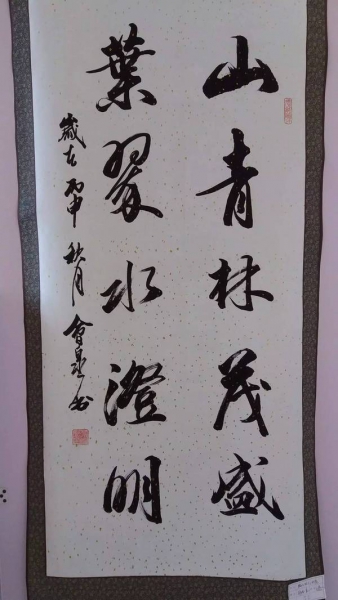 山青林茂盛
葉翠水澄明
歲在丙申秋月會是书